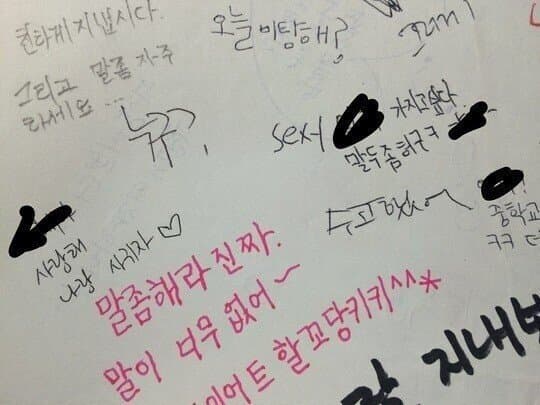 지냅시다.
그리고 말좀 자주
하세요...
오늘 미탕해?
뉴규?
sexy 가지고싶다
말두좀하구ㅋ
수고했어
중학교
ㅋㅋ
사랑해
나랑 사귀자♡
말좀해라 진짜.
말이 너무 없어~
이어트 할꼬당키키^^*
지내보